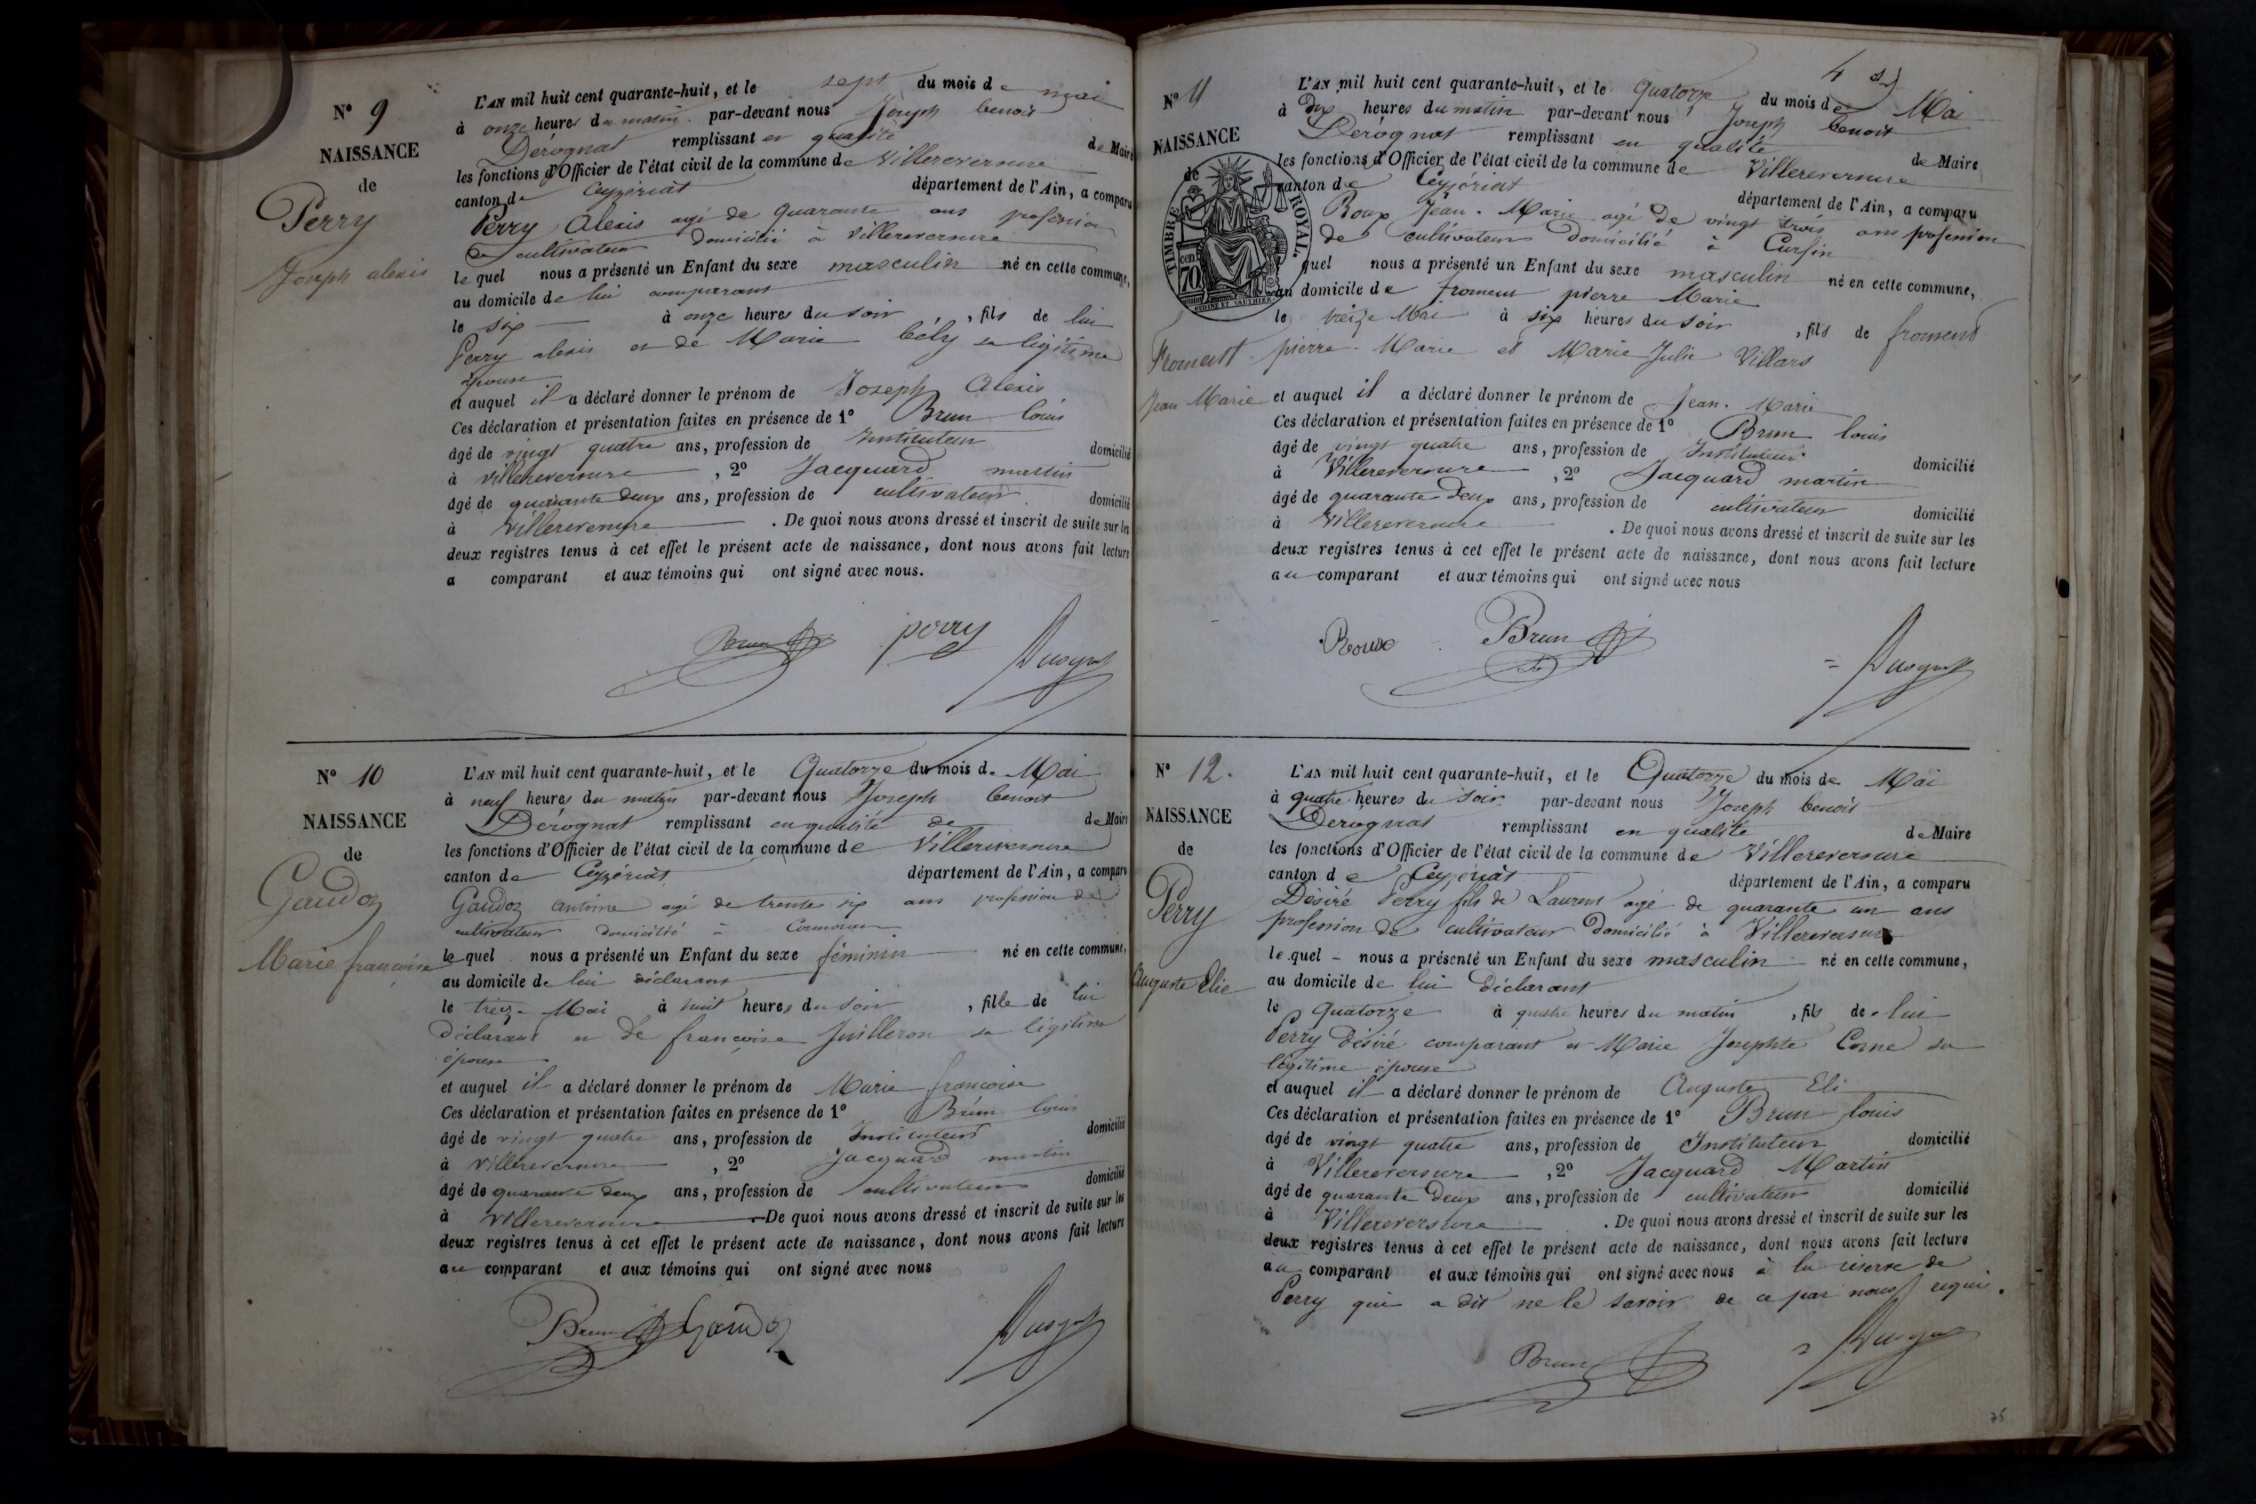 N° 9
NAISSANCE
de
Perry
Joseph alexis
L'AN mil huit cent quarante-huit, et le sept du mois de mai
à onze heures du matin par-devant nous Joseph benoit
Dérognat remplissant en qualité de Maire
les fonctions d'Officier de l'état civil de la commune de Villereversure
canton de Ceyzériat département de l'Ain, a comparu
Perry Alexis agé de quarante ans profession
de cultivateur domicilié à Villereversure
le quel nous a présenté un Enfant du sexe masculin né en cette commune,
au domicile de lui comparant
le six à onze heures du soir, fils de lui
Perry alexis et de Marie bély sa légitime
épouse
et auquel il a déclaré donner le prénom de Joseph Alexis
Ces déclaration et présentation faites en présence de 1° Brun louis
âgé de vingt quatre ans, profession de Instituteur domicilié
à villereversure, 2° Jacquard martin
âgé de quarante deux ans, profession de cultivateur domicilié
à Villereversure. De quoi nous avons dressé et inscrit de suite sur les
deux registres tenus à cet effet le présent acte de naissance, dont nous avons fait lecture
a comparant et aux témoins qui ont signé avec nous.
Brun perry
N° 10
NAISSANCE
de
Gaudoz
Marie françoise
L'AN mil huit cent quarante-huit, et le Quatorze du mois de Mai
à neuf heures du matin par-devant nous Joseph benoit
Dérognat remplissant en qualité de de Maire
les fonctions d'Officier de l'état civil de la commune de Villereversure
canton de Ceyzériat département de l'Ain, a comparu
Gaudoz antoine agé de trente six ans profession de
cultivateur domicilié à
le quel nous a présenté un Enfant du sexe féminin né en cette commune,
au domicile de lui déclarant
le treize Mai à huit heures du soir, fille de lui
déclarant et de françoise Juilleron sa légitime
épouse
et auquel il a déclaré donner le prénom de Marie françoise
Ces déclaration et présentation faites en présence de 1° Brun louis
âgé de vingt quatre ans, profession de Instituteur domicilié
à Villereversure, 2° Jacquard martin
âgé de quarante deux ans, profession de cultivateur domicilié
à Villereversure. De quoi nous avons dressé et inscrit de suite sur les
deux registres tenus à cet effet le présent acte de naissance, dont nous avons fait lecture
au comparant et aux témoins qui ont signé avec nous
Brun Gaudoz
4
N° 11
NAISSANCE
de
TIMBRE ROYAL.
70 cen
Froment
Jean Marie
L'AN mil huit cent quarante-huit, et le Quatorze du mois de Mai
à dix heures du matin par-devant nous Joseph benoit
Dérognat remplissant en qualité de Maire
les fonctions d'Officier de l'état civil de la commune de Villereversure
canton de Ceyzériat département de l'Ain, a comparu
Roux Jean-Marie agé de vingt trois ans profession
de cultivateur domicilié à
quel nous a présenté un Enfant du sexe masculin né en cette commune,
au domicile de froment pierre Marie
le treize Mai à six heures du soir, fils de froment
pierre-Marie et Marie Julie Villars
et auquel il a déclaré donner le prénom de Jean-Marie
Ces déclaration et présentation faites en présence de 1° Brun louis
âgé de vingt quatre ans, profession de Instituteur domicilié
à Villereversure, 2° Jacquard martin
âgé de quarante deux ans, profession de cultivateur domicilié
à Villereversure. De quoi nous avons dressé et inscrit de suite sur les
deux registres tenus à cet effet le présent acte de naissance, dont nous avons fait lecture
au comparant et aux témoins qui ont signé avec nous
Roux Brun
N° 12.
NAISSANCE
de
Perry
Auguste Elie
L'AN mil huit cent quarante-huit, et le Quatorze du mois de Mai
à quatre heures du soir par-devant nous Joseph benoit
Dérognat remplissant en qualité de Maire
les fonctions d'Officier de l'état civil de la commune de Villereversure
canton de Ceyzériat département de l'Ain, a comparu
Désiré Perry fils de Laurent agé de quarante un ans
profession de cultivateur domicilié à Villereversure
le quel - nous a présenté un Enfant du sexe masculin né en cette commune,
au domicile de lui déclarant
le Quatorze à quatre heures du matin, fils de lui
Perry Désiré comparant et Marie Josephte Corne sa
légitime épouse
et auquel il a déclaré donner le prénom de Auguste Eli
Ces déclaration et présentation faites en présence de 1° Brun louis
âgé de vingt quatre ans, profession de Instituteur domicilié
à Villereversure, 2° Jacquard Martin
âgé de quarante deux ans, profession de cultivateur domicilié
à Villereversure. De quoi nous avons dressé et inscrit de suite sur les
deux registres tenus à cet effet le présent acte de naissance, dont nous avons fait lecture
au comparant et aux témoins qui ont signé avec nous à la réserve de
Perry qui a dit ne le savoir de ce par nous requis.
Brun